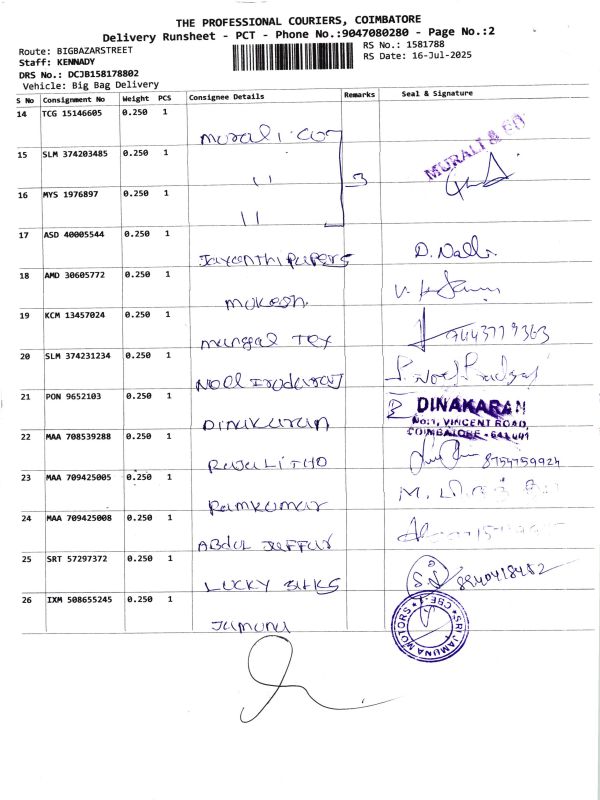 THE PROFESSIONAL COURIERS, COIMBATORE
Delivery Runsheet - PCT - Phone No.:9047080280 - Page No.:2
Route: BIGBAZARSTREET
RS No.: 1581788
Staff: KENNADY
RS Date: 16-Jul-2025
DRS No.: DCJB158178802
Vehicle: Big Bag Delivery
S No Consignment No Weight PCS Consignee Details Remarks Seal & Signature
14 TCG 15146605 0.250 1
murali.co
MURALI & CO
15 SLM 374203485 0.250 1
11 3
16 MYS 1976897 0.250 1
11
17 ASD 40005544 0.250 1
Jayanthi papers
18 AMD 30605772 0.250 1
mukesh.
19 KCM 13457024 0.250 1
mangal Tex 9443779363
20 SLM 374231234 0.250 1
Noel Irudaraj
21 PON 9652103 0.250 1
Dinakaran
DINAKARAN
No:1, VINCENT ROAD,
COIMBATORE - 641 001
22 MAA 708539288 0.250 1
Raja LITHO 8754759924
23 MAA 709425005 0.250 1
Ramkumar
24 MAA 709425008 0.250 1
Abdul Jaffar
25 SRT 57297372 0.250 1
LUCKY silks 8940418482
26 IXM 508655245 0.250 1
Jamuna
SRI JAMUNA MOTORS
CBE-1